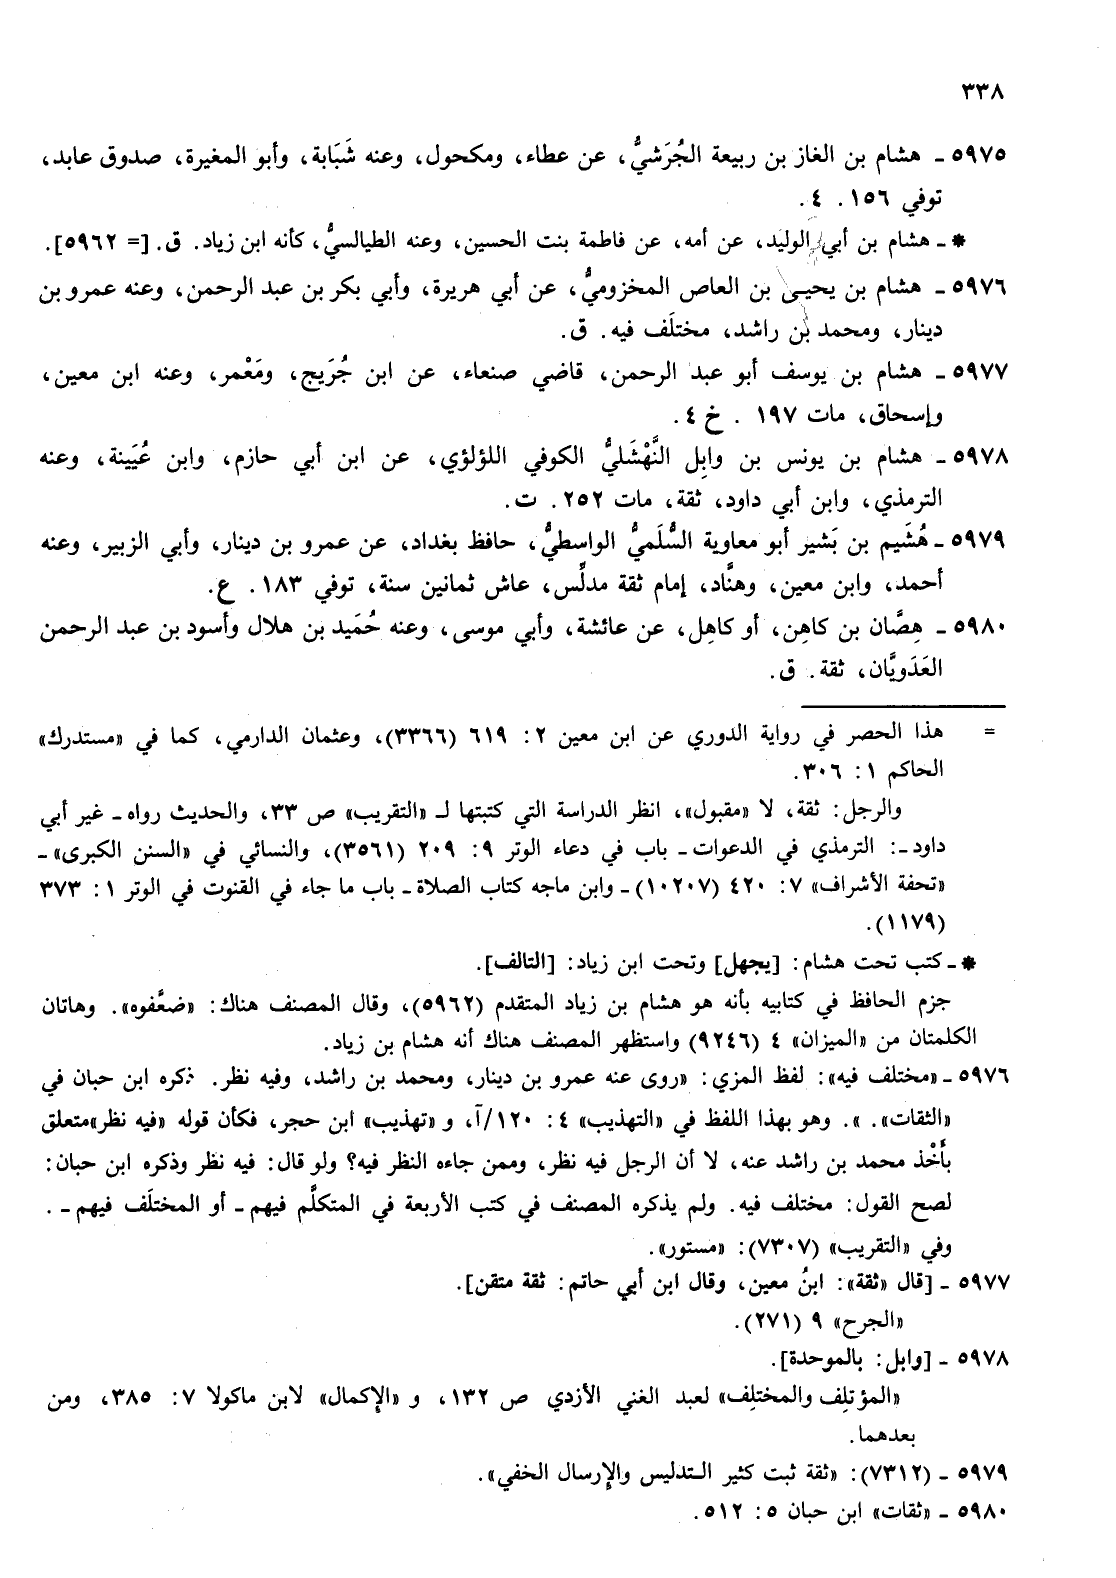 ٣٣٨
٥٩٧٥ ـ هشام بن الغاز بن ربيعة الجُرَشيُّ، عن عطاء، ومكحول، وعنه شَبَابة، وأبو المغيرة، صدوق عابد،
توفي ١٥٦. ٤.
* ـ هشام بن أبي الوليد، عن أمه، عن فاطمة بنت الحسين، وعنه الطيالسيُّ، كأنه ابن زياد. ق. [= ٥٩٦٢].
٥٩٧٦ ـ هشام بن يحيى بن العاص المخزوميُّ، عن أبي هريرة، وأبي بكر بن عبد الرحمن، وعنه عمرو بن
دينار، ومحمد بن راشد، مختلَف فيه. ق.
٥٩٧٧ ـ هشام بن يوسف أبو عبد الرحمن، قاضي صنعاء، عن ابن جُرَيج، ومَعْمر، وعنه ابن معين،
وإسحاق، مات ١٩٧ . خ ٤.
٥٩٧٨ ـ هشام بن يونس بن وابِل النَّهْشَليُّ الكوفي اللؤلؤي، عن ابن أبي حازم، وابن عُيَينة، وعنه
الترمذي، وابن أبي داود، ثقة، مات ٢٥٢. ت.
٥٩٧٩ ـ هُشَيم بن بَشير أبو معاوية السُّلَميُّ الواسطيُّ، حافظ بغداد، عن عمرو بن دينار، وأبي الزبير، وعنه
أحمد، وابن معين، وهنَّاد، إمام ثقة مدلِّس، عاش ثمانين سنة، توفي ١٨٣. ع.
٥٩٨٠ ـ هِصَّان بن كاهِن، أو كاهِل، عن عائشة، وأبي موسى، وعنه حُمَيد بن هلال وأسود بن عبد الرحمن
العَدَويَّان، ثقة. ق.
= هذا الحصر في رواية الدوري عن ابن معين ٢: ٦١٩ (٣٣٦٦)، وعثمان الدارمي، كما في «مستدرك»
الحاكم ١: ٣٠٦.
والرجل: ثقة، لا «مقبول»، انظر الدراسة التي كتبتها لـ «التقريب» ص ٣٣، والحديث رواه ـ غير أبي
داود ـ: الترمذي في الدعوات ـ باب في دعاء الوتر ٩: ٢٠٩ (٣٥٦١)، والنسائي في «السنن الكبرى» ـ
«تحفة الأشراف» ٧: ٤٢٠ (١٠٢٠٧) ـ وابن ماجه كتاب الصلاة ـ باب ما جاء في القنوت في الوتر ١: ٣٧٣
(١١٧٩).
* ـ كتب تحت هشام: [يجهل] وتحت ابن زياد: [التالف].
جزم الحافظ في كتابيه بأنه هو هشام بن زياد المتقدم (٥٩٦٢)، وقال المصنف هناك: «ضعَّفوه». وهاتان
الكلمتان من «الميزان» ٤ (٩٢٤٦) واستظهر المصنف هناك أنه هشام بن زياد.
٥٩٧٦ ـ «مختلف فيه»: لفظ المزي: «روى عنه عمرو بن دينار، ومحمد بن راشد، وفيه نظر. ذكره ابن حبان في
«الثقات». ». وهو بهذا اللفظ في «التهذيب» ٤: ١٢٠/آ، و «تهذيب» ابن حجر، فكأن قوله «فيه نظر»متعلق
بأَخْذ محمد بن راشد عنه، لا أن الرجل فيه نظر، وممن جاءه النظر فيه؟ ولو قال: فيه نظر وذكره ابن حبان:
لصح القول: مختلف فيه. ولم يذكره المصنف في كتب الأربعة في المتكلَّم فيهم ـ أو المختلَف فيهم ـ .
وفي «التقريب» (٧٣٠٧): «مستور».
٥٩٧٧ ـ [قال «ثقة»: ابنُ معين، وقال ابن أبي حاتم: ثقة متقن].
«الجرح» ٩ (٢٧١).
٥٩٧٨ ـ [وابل: بالموحدة].
«المؤتلِف والمختلِف» لعبد الغني الأزدي ص ١٣٢، و «الإكمال» لابن ماكولا ٧: ٣٨٥، ومن
بعدهما.
٥٩٧٩ ـ (٧٣١٢): «ثقة ثبت كثير التدليس والإرسال الخفي».
٥٩٨٠ ـ «ثقات» ابن حبان ٥: ٥١٢.